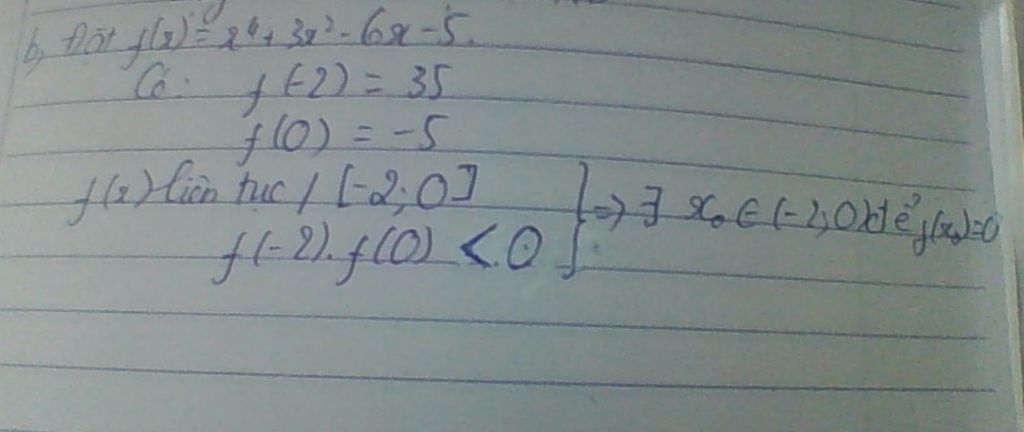 b, Đặt f(x) = x⁴ + 3x² - 6x - 5.
Có: f(-2) = 35
f(0) = -5
f(x) liên tục / [-2; 0]
f(-2). f(0) < 0
} => ∃ x₀ ∈ (-2; 0) để f(x₀) = 0